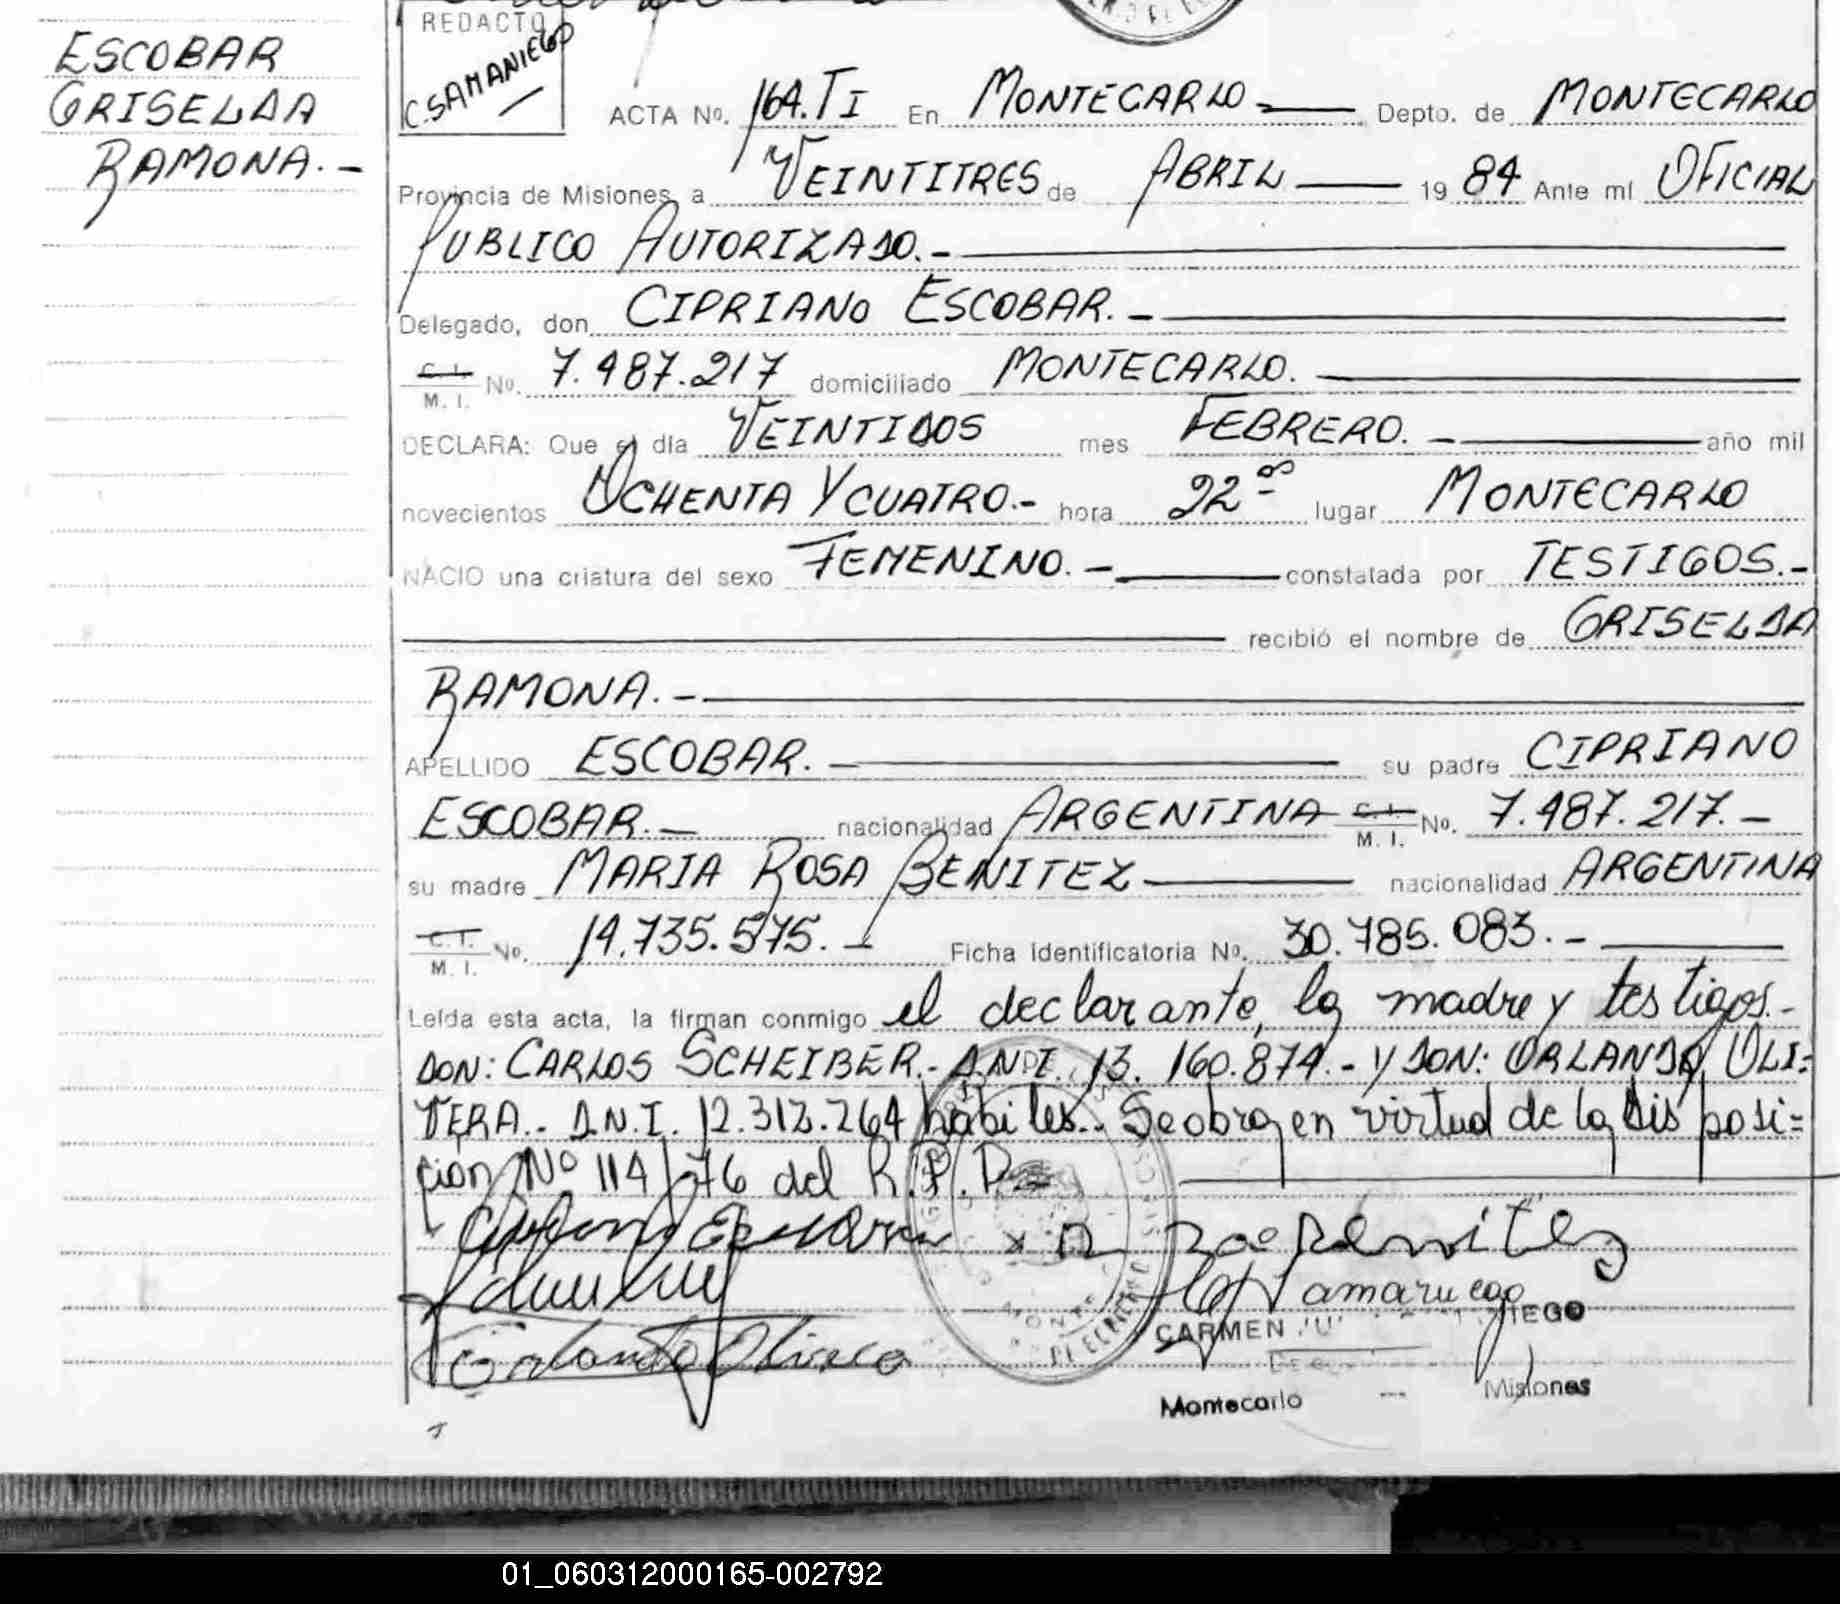 ESCOBAR
GRISELDA
RAMONA.-
REDACTO
C.SAMANIEGO
ACTA No. 164.TI En MONTECARLO Depto. de MONTECARLO
Provincia de Misiones, a VEINTITRES de ABRIL 19 84 Ante mí OFICIAL
PUBLICO AUTORIZADO.-
Delegado, don CIPRIANO ESCOBAR.-
C.I. M.I. No. 7.487.217 domiciliado MONTECARLO.
DECLARA: Que el día VEINTIDOS mes FEBRERO.- año mil
novecientos OCHENTA Y CUATRO.- hora 22 00 lugar MONTECARLO
NACIO una criatura del sexo FEMENINO.- constatada por TESTIGOS.-
recibió el nombre de GRISELDA
RAMONA.-
APELLIDO ESCOBAR.- su padre CIPRIANO
ESCOBAR.- nacionalidad ARGENTINA C.I. M.I. No. 7.487.217.-
su madre MARIA ROSA BENITEZ nacionalidad ARGENTINA
C.I. M.I. No. 14.735.575.- Ficha Identificatoria No. 30.785.083.-
Leída esta acta, la firman conmigo el declarante, la madre y testigos.-
DON: CARLOS SCHEIBER.- D.N.I. 13.160.874.- Y DON: ORLANDO OLI=
VERA.- D.N.I. 12.312.264 habiles.- Se obra en virtud de la disposi=
ción Nº 114/76 del R.P.P.
Escobar
Benitez
Orlando Olivera
CARMEN
Montecarlo - Misiones
01_060312000165-002792